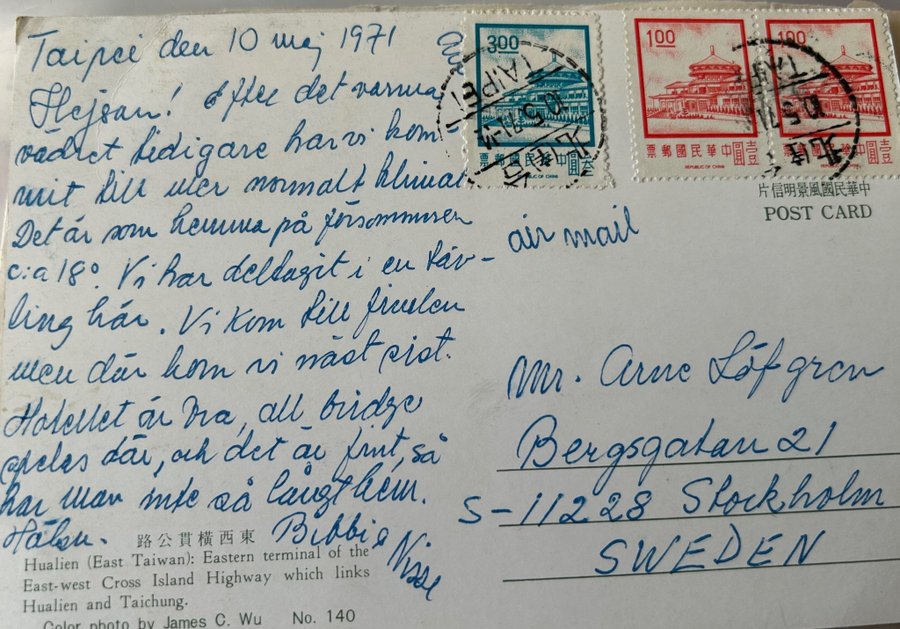 Taipei den 10 maj 1971
Hejsan! Efter det varma
vädret tidigare har vi kom
mit till mer normalt klimat
Det är som hemma på försommaren
c:a 18°. Vi har deltagit i en täv-
ling här. Vi kom till finalen
men där kom vi näst sist.
Hotellet är bra, all bridge
spelas där, och det är fint, så
har man inte så långt hem.
Hälsn. Bibbi Nisse
東西橫貫公路
Hualien (East Taiwan): Eastern terminal of the
East-west Cross Island Highway which links
Hualien and Taichung.
Color photo by James C. Wu No. 140
3.00
中華民國郵票
叁圓
REPUBLIC OF CHINA
TAIPEI
10.5.71
1.00
中華民國郵票
壹圓
REPUBLIC OF CHINA
1.00
中華民國郵票
壹圓
10.5.71
中華民國風景明信片
POST CARD
air mail
Mr. Arne Löfgren
Bergsgatan 21
S-11228 Stockholm
SWEDEN